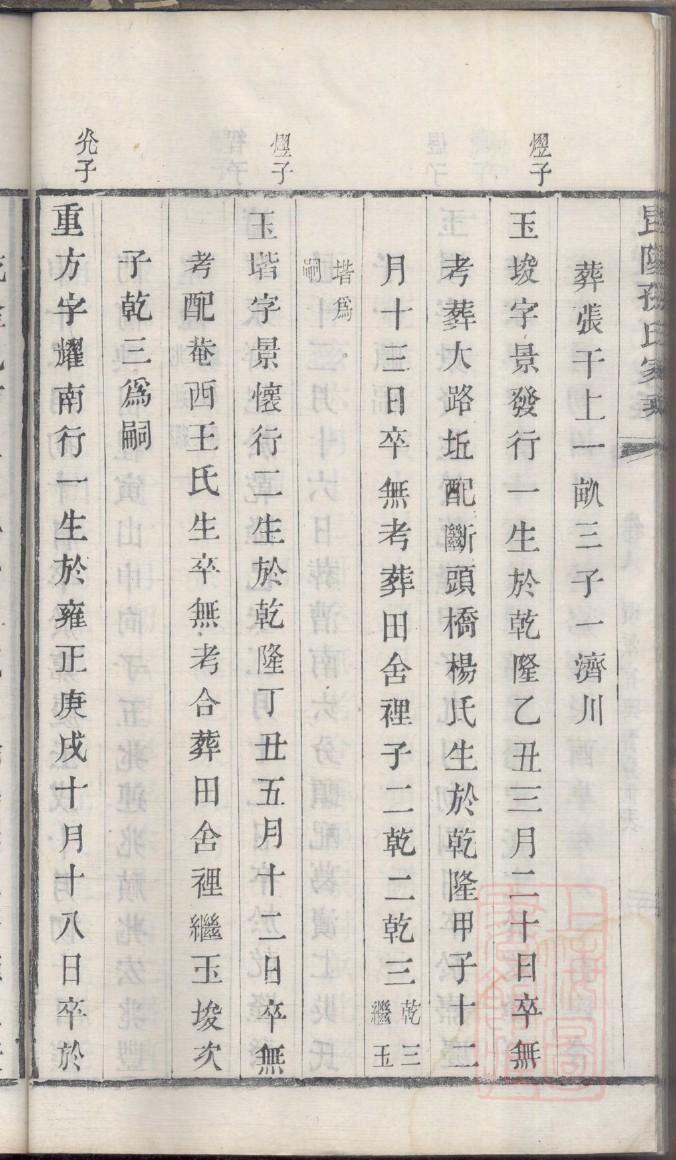 葬張干上一畝三子一濟川
燿子
玉埈字景發行一生於乾隆乙丑三月二十日卒無
考葬大路坵配斷頭橋楊氏生於乾隆甲子十二
月十三日卒無考葬田舍裡子二乾二乾三乾三繼玉
堦爲嗣
燿子
玉堦字景懷行二生於乾隆丁丑五月十二日卒無
考配菴西王氏生卒無考合葬田舍裡繼玉埈次
子乾三爲嗣
光子
重方字耀南行一生於雍正庚戌十月十八日卒於